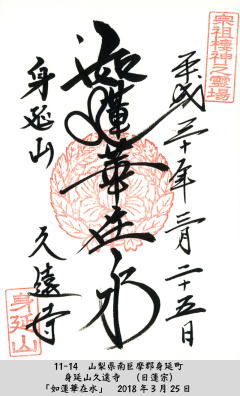 宗祖棲神之霊場
平成三十年三月二十五日
如蓮華在水
身延山
久遠寺
身延山
11-14 山梨県南巨摩郡身延町
身延山久遠寺 (日蓮宗)
「如蓮華在水」 2018年3月25日